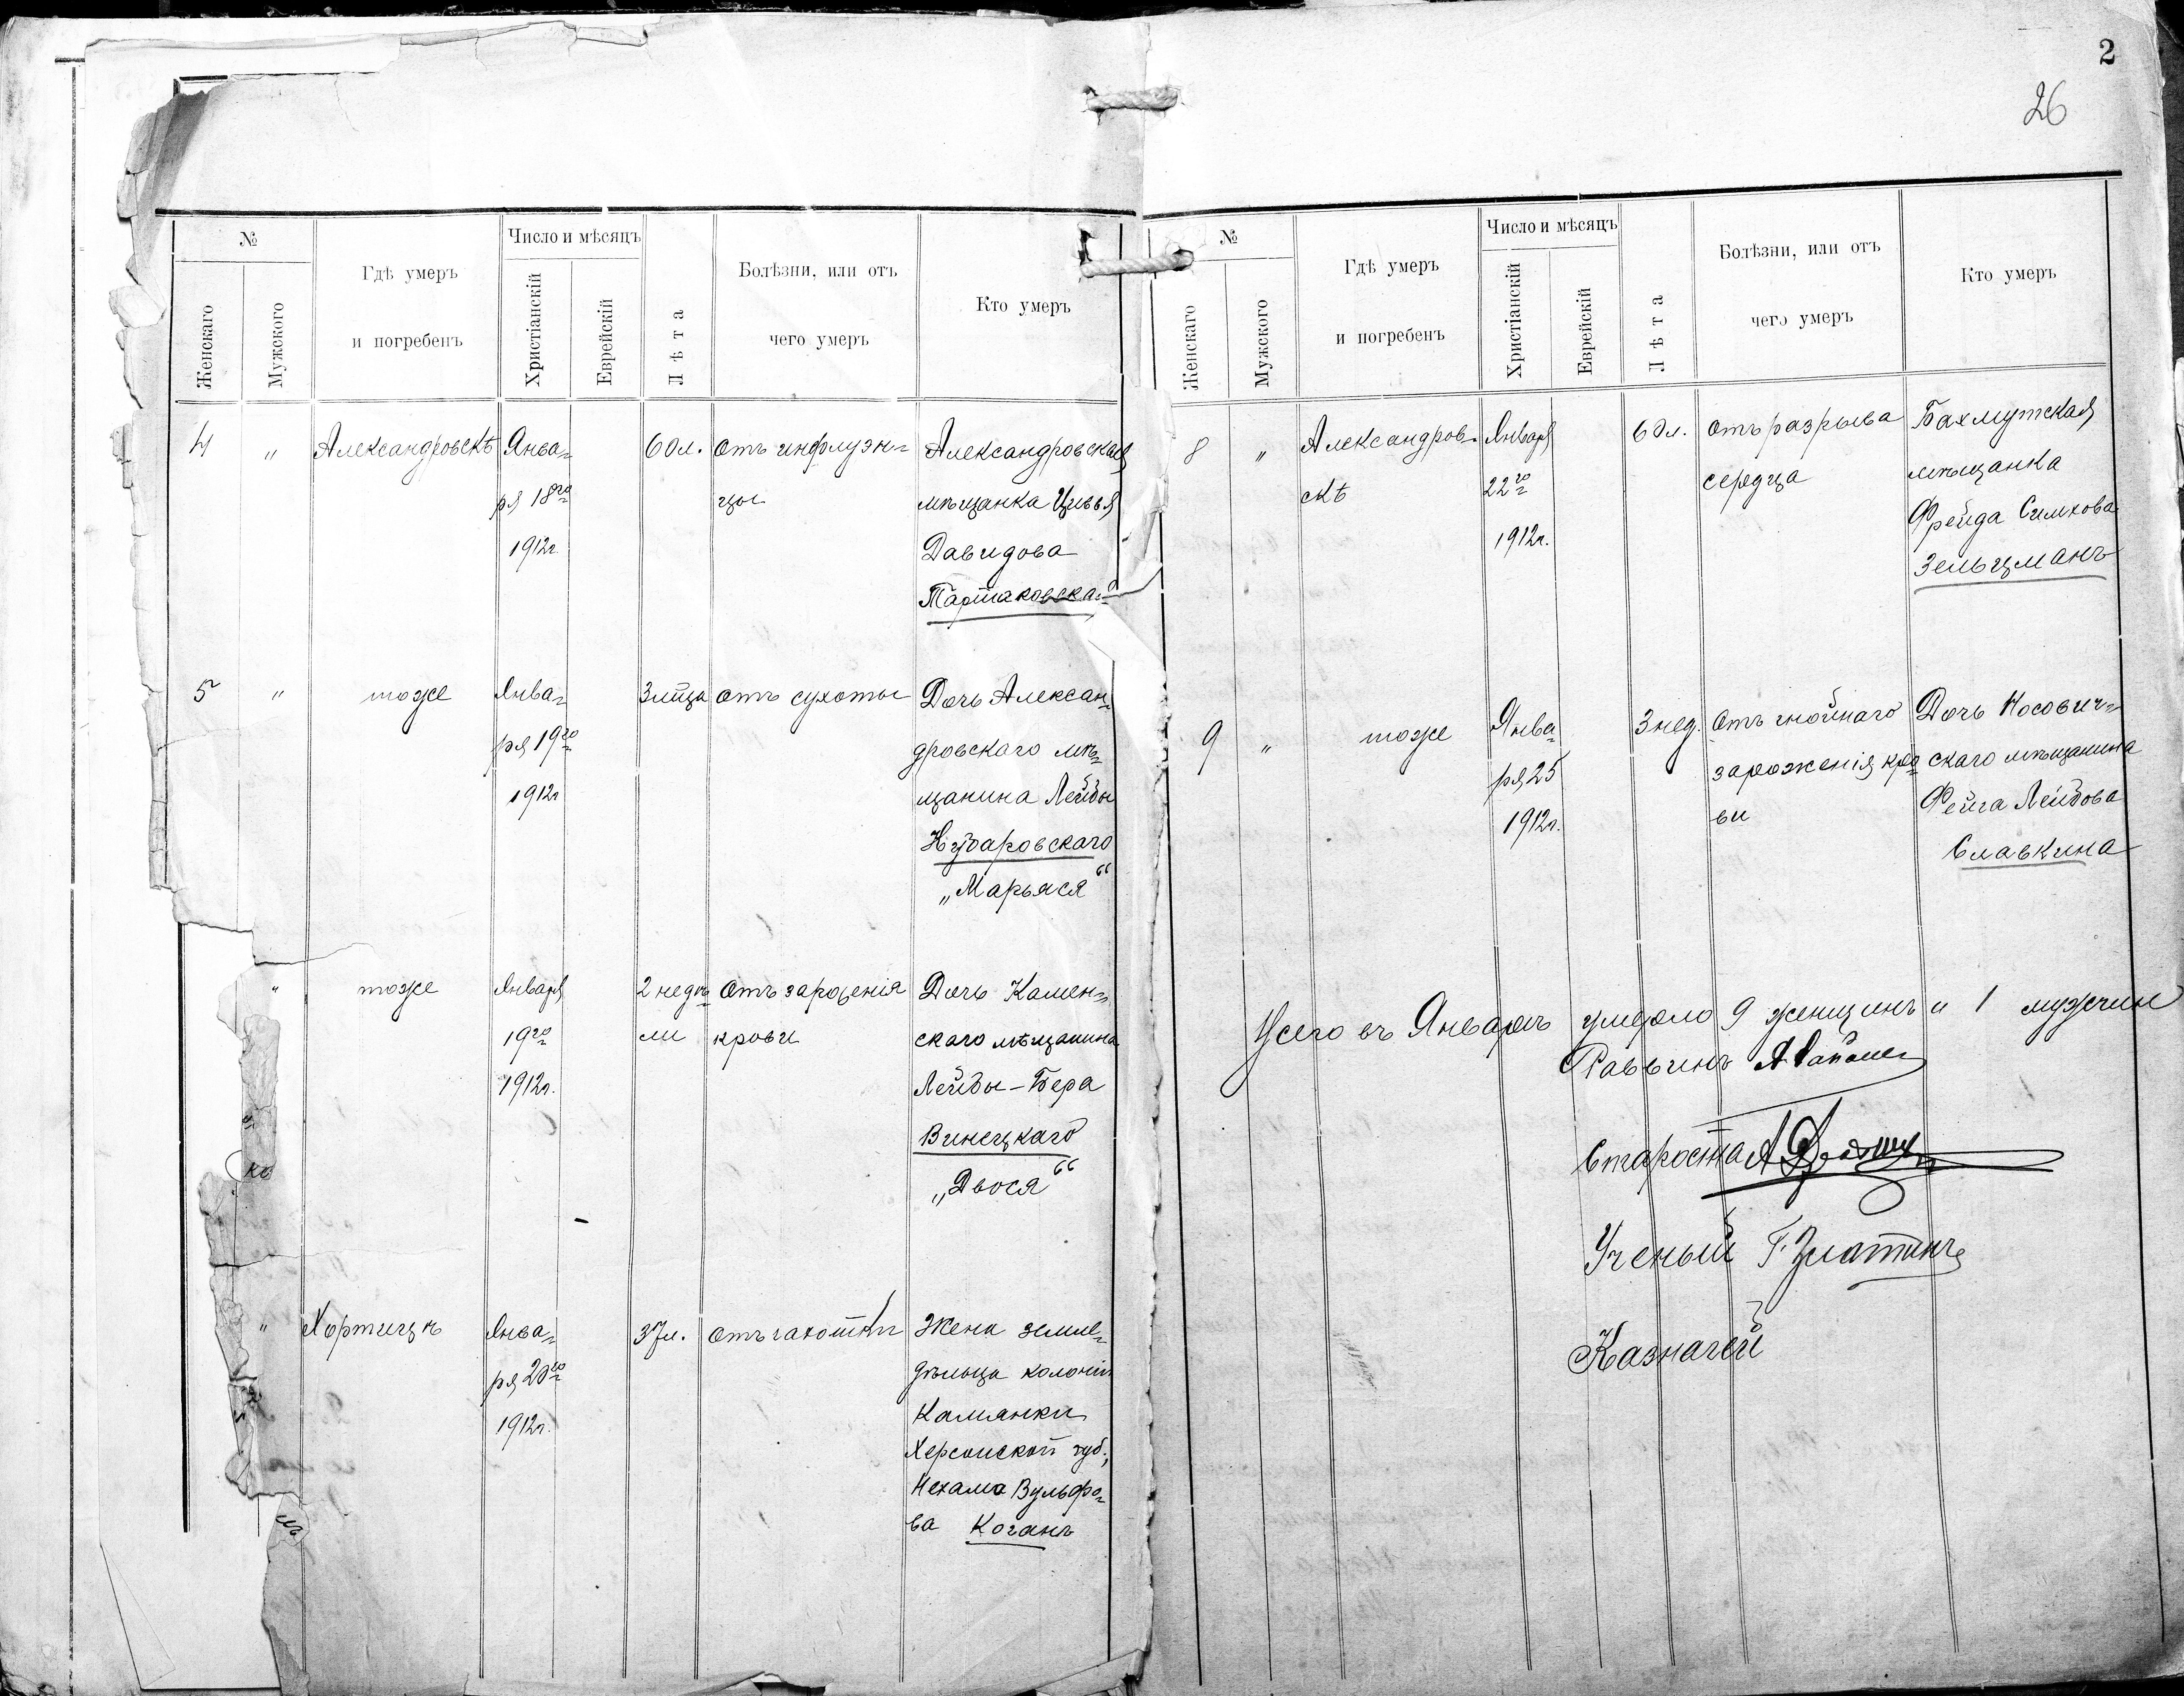 2
26
№
Женскаго
Мужского
Гдѣ умеръ
и погребенъ
Число и мѣсяцъ
Христіанскій
Еврейскій
Лѣта
Болѣзни, или отъ
чего умеръ
Кто умеръ
4 " Александровскѣ Янва-
ря 18го
1912г.
60л. отъ инфлуэн-
цы
Александровская
мѣщанка Цивья
Давидова
Тартаковская
5 " тоже Янва-
ря 19го
1912г
3 м-ца отъ сухоты
Дочь Алексан-
дровскаго мѣ-
щанина Лейбы
Нударовскаго
„Марьяся“
" тоже Января
19го
1912г.
2 недѣ-
ли
отъ зараженія
крови
Дочь Камен-
скаго мѣщанина
Лейбы-Бера
Винецкаго
„Двося“
" Хортицѣ Янва-
ря 20го
1912г.
37л. отъ чахотки
Жена земле-
дѣльца колоніи
Камянки
Херсонской губ.,
Нехама Вульфо-
ва Коганъ
№
Женскаго
Мужского
Гдѣ умеръ
и погребенъ
Число и мѣсяцъ
Христіанскій
Еврейскій
Лѣта
Болѣзни, или отъ
чего умеръ
Кто умеръ
8 " Александров-
скѣ
Января
22го
1912г.
60л. отъ разрыва
сердца
Бахмутская
мѣщанка
Фрейда Симхова
Зельцманъ
9 " тоже Янва-
ря 25
1912г.
3 нед. отъ гнойнаго
зараженія кро-
ви
Дочь Носович-
скаго мѣщанина
Фейга Лейбова
Славкина
Всего въ Январѣ умерло 9 женщинъ и 1 мужчин
Раввинъ
Староста
Ученый Г. Златинъ
Казначей